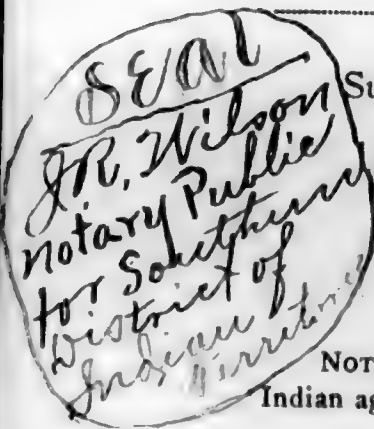 SEAL
Su
J.R. Wilson
notary Public
for Southern
District of
Indian
Territory
NOT
Indian ag